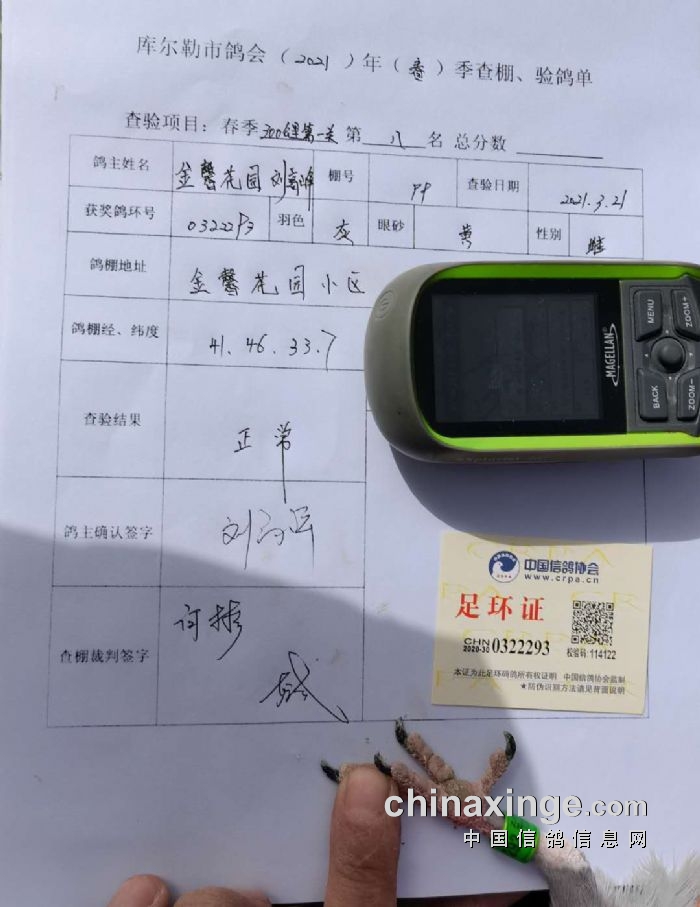 库尔勒市鸽会（2021）年（春）季查棚、验鸽单
查验项目：春季300公里第一关 第 八 名 总分数
鸽主姓名 金馨花园 刘 棚号 查验日期 2021.3.21
获奖鸽环号 0322293 羽色 灰 眼砂 黄 性别 雌
鸽棚地址 金馨花园小区
鸽棚经、纬度 41.46.33.7
查验结果 正常
鸽主确认签字 刘
查棚裁判签字 许彬
MAGELLAN
MENU
ZOOM+
BACK
ZOOM-
中国信鸽协会
www.crpa.cn
足环证
CHN
2020-30 0322293 校验码: 114122
本证为此足环码鸽所有权证明 中国信鸽协会监制
★防伪识别方法请见背面说明
chinaxinge.com
中国信鸽信息网